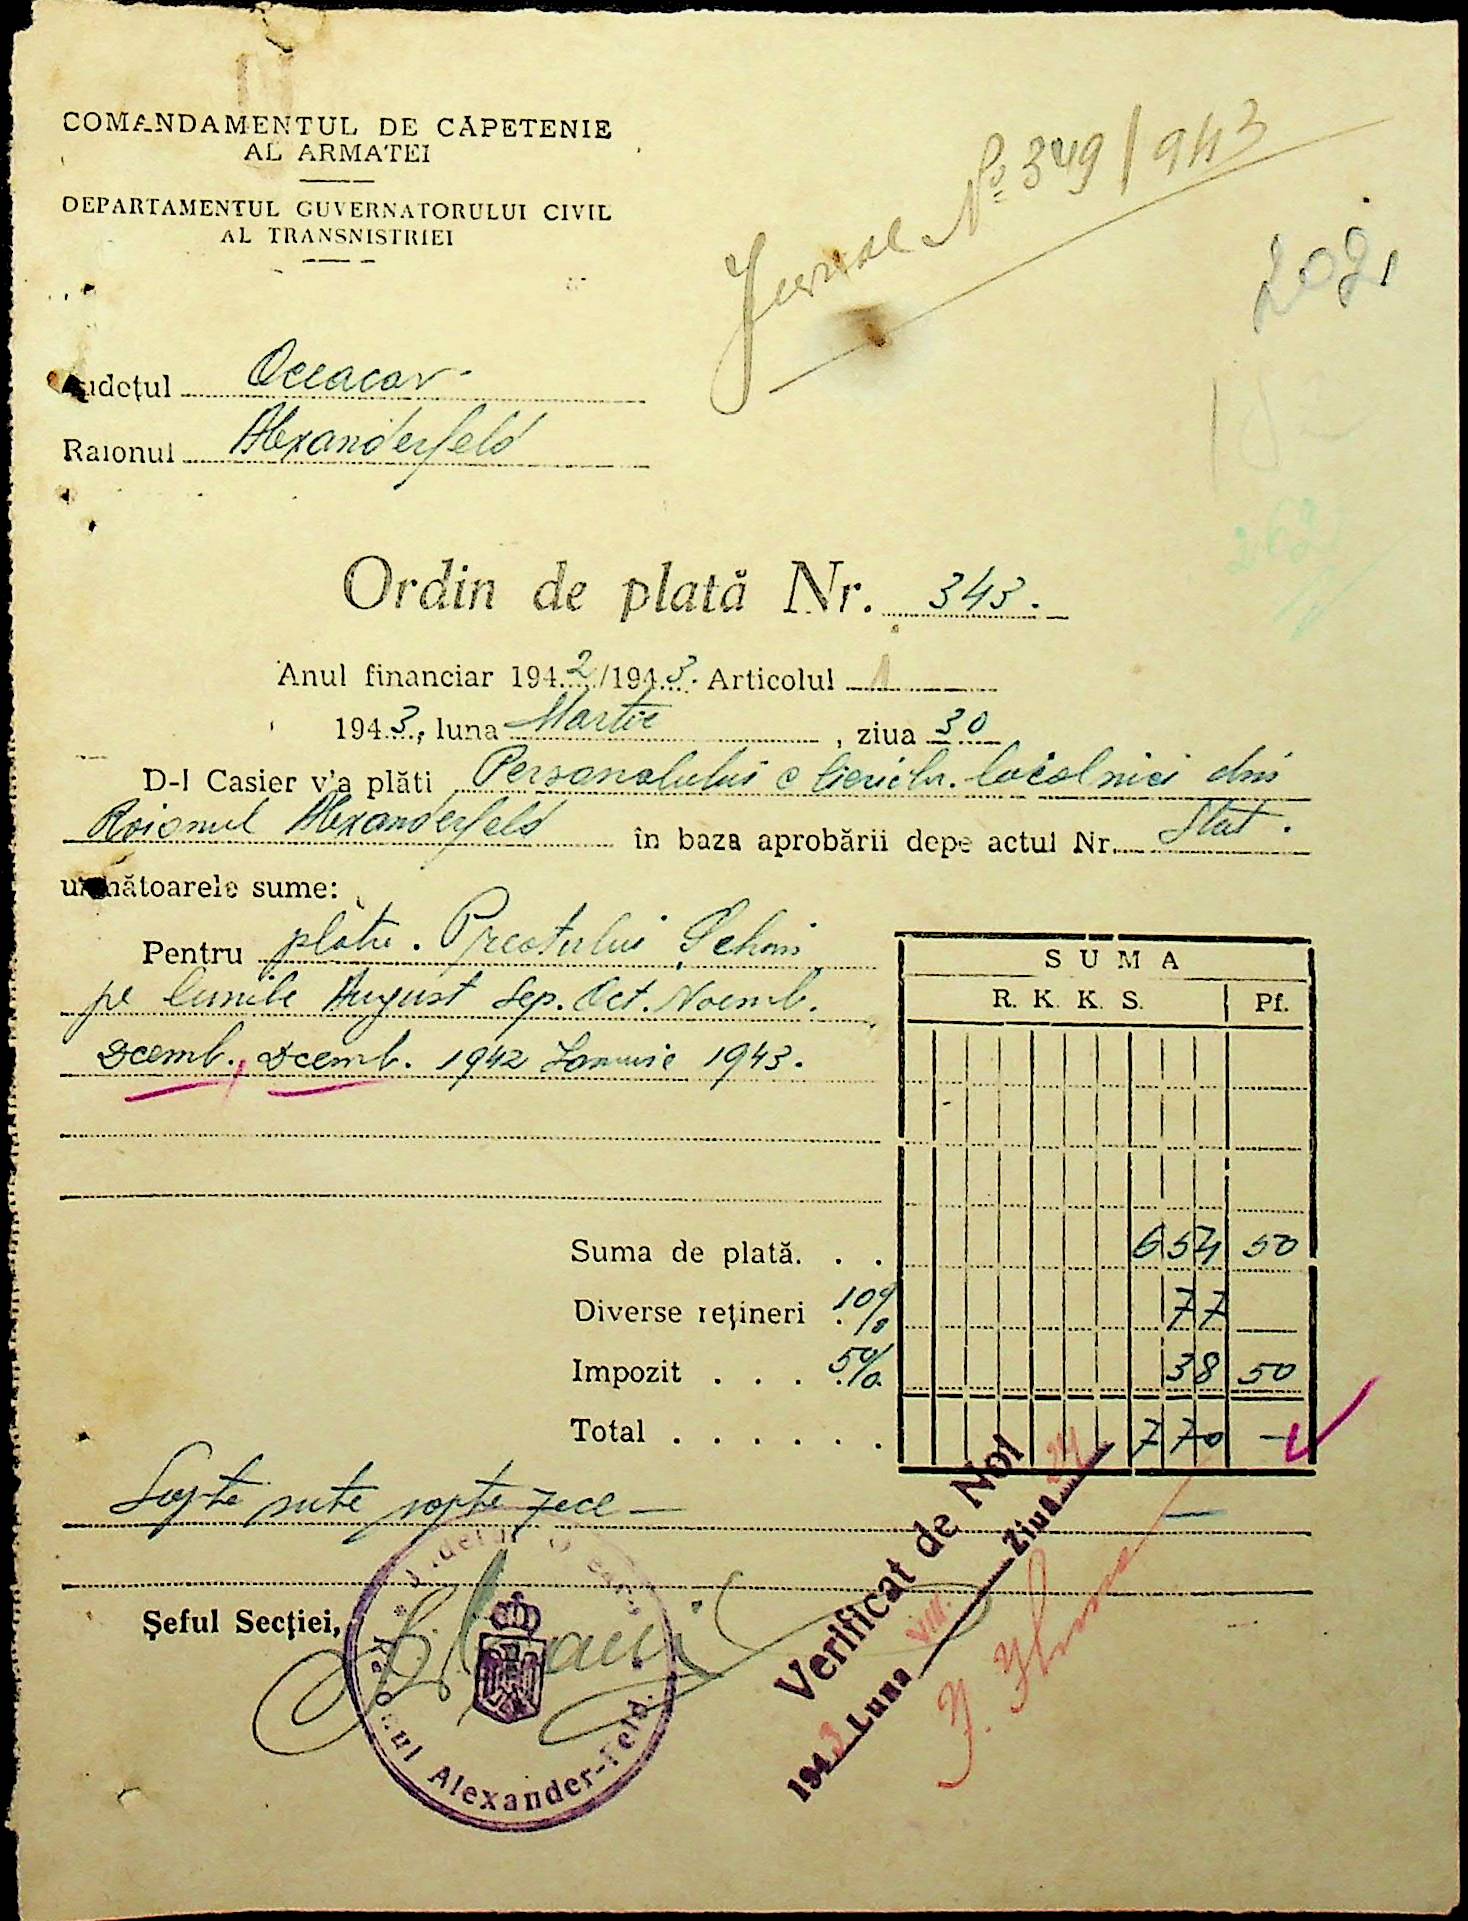 COMANDAMENTUL DE CAPETENIE
AL ARMATEI
DEPARTAMENTUL GUVERNATORULUI CIVIL
AL TRANSNISTRIEI
Jurnal No 349/943
202
Județul Oceacov
Raionul Alexanderfeld
Ordin de plată Nr. 343.
Anul financiar 1942/1943. Articolul 1
1943, luna Martie, ziua 30
D-l Casier v'a plăti Personalului clericilor localnici din
Raionul Alexanderfeld în baza aprobării depe actul Nr. Stat.
următoarele sume:
Pentru plata Preotului
pe lunile August Sep. Oct. Noemb.
Decemb., Decemb. 1942 Ianuarie 1943.
SUMA
R. K. K. S. Pf.
Suma de plată. . . 654 50
Diverse rețineri 10% 77 —
Impozit . . . 5% 38 50
Total . . . . . . 770 —
Șapte sute șapte zece —
Șeful Secției,
Județul Oceacov
* Raionul Alexander-Feld. *
Verificat de Noi
1943 Luna VIII. Ziua 24